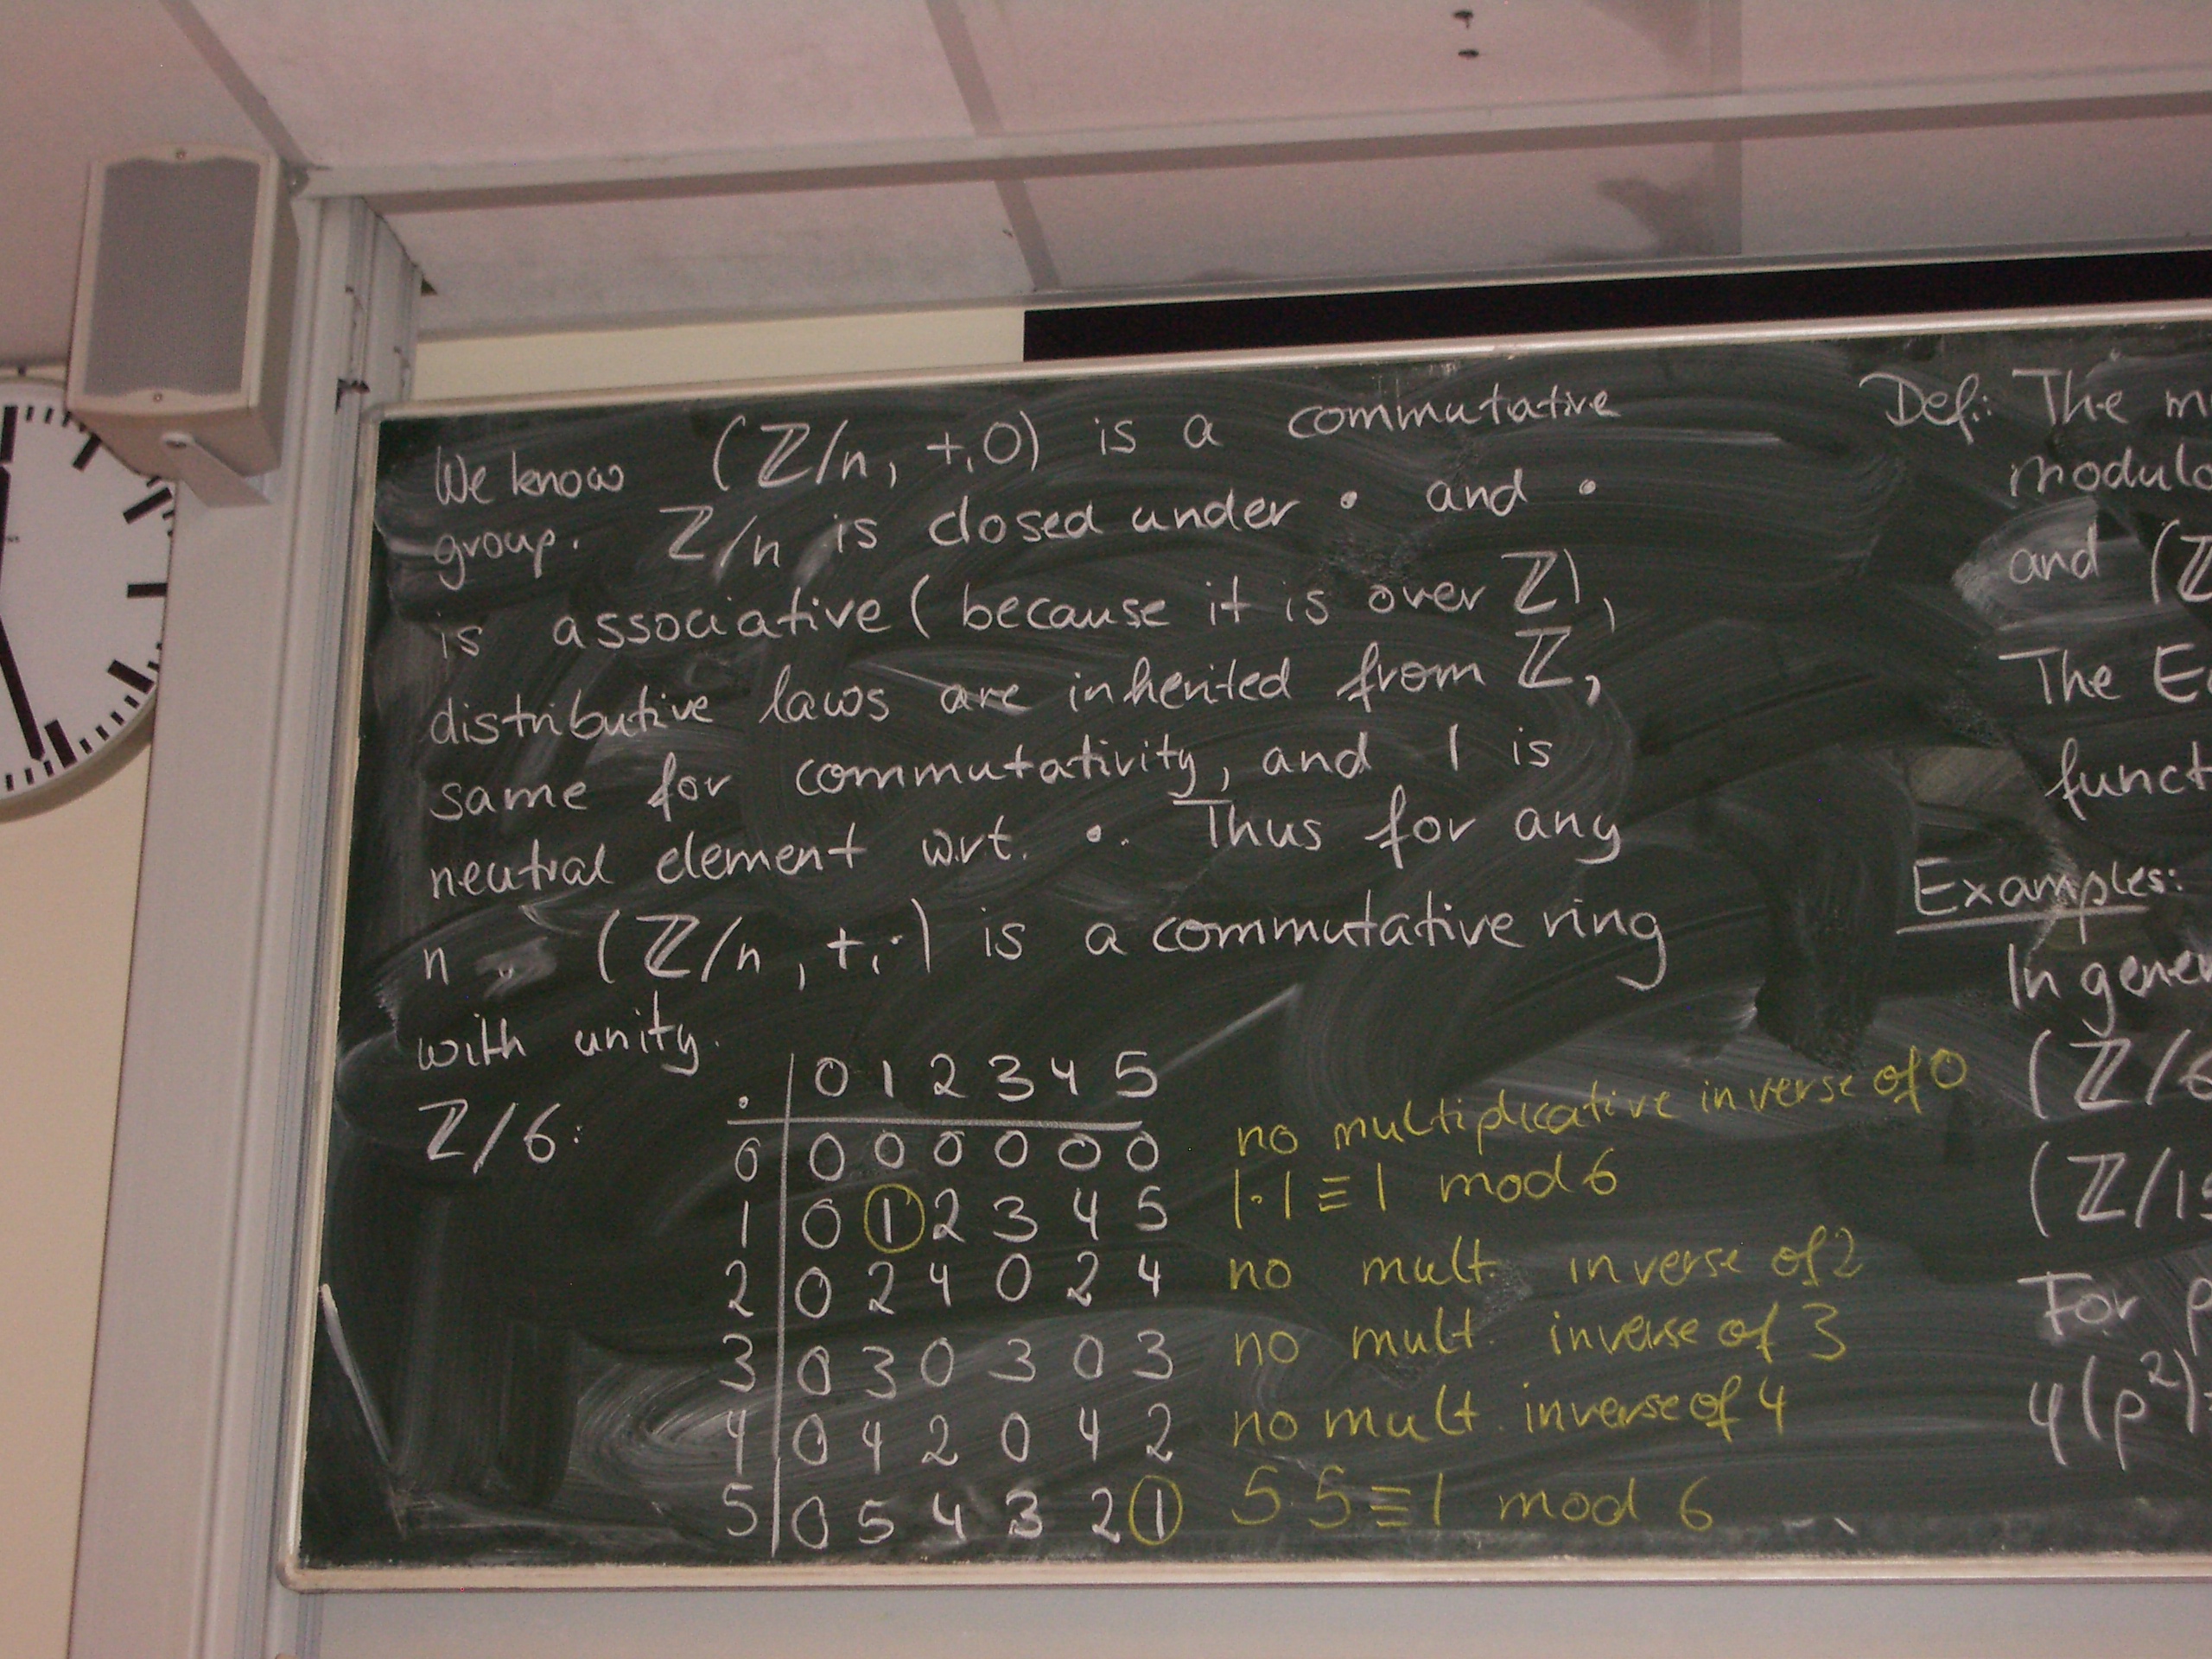 We know (ℤ/n, +,0) is a commutative
group. ℤ/n is closed under • and •
is associative (because it is over ℤ),
distributive laws are inherited from ℤ,
same for commutativity, and 1 is
neutral element wrt. •. Thus for any
n (ℤ/n, +,·) is a commutative ring
with unity.
ℤ/6:
. | 0 1 2 3 4 5
0 | 0 0 0 0 0 0 no multiplicative inverse of 0
1 | 0 1 2 3 4 5 1·1≡1 mod 6
2 | 0 2 4 0 2 4 no mult. inverse of 2
3 | 0 3 0 3 0 3 no mult. inverse of 3
4 | 0 4 2 0 4 2 no mult. inverse of 4
5 | 0 5 4 3 2 1 5·5≡1 mod 6
Def.: The m
modulo
and (ℤ
The E
funct
Examples:
In gener
(ℤ/6
(ℤ/15
For p
φ(p²)